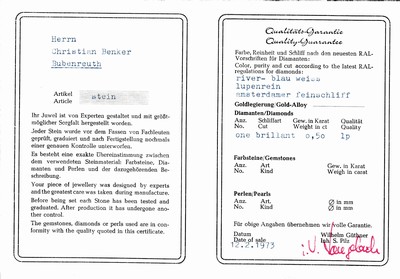 Herrn
Christian Renker
Bubenreuth
Artikel
Article
stein
Ihr Juwel ist von Experten gestaltet und mit größt-
möglicher Sorgfalt hergestellt worden.
Jeder Stein wurde vor dem Fassen von Fachleuten
geprüft, graduiert und nach Fertigstellung nochmals
einer genauen Kontrolle unterworfen.
Es besteht eine exakte Übereinstimmung zwischen
dem verwendeten Steinmaterial: Farbsteine, Dia-
manten und Perlen und der dazugehörenden Be-
schreibung.
Your piece of jewellery was designed by experts
and the greatest care was taken during manufacture.
Before being set each Stone has been tested and
graduated. After production it was undergone ano-
ther control.
The gemstones, diamonds or perls used are in con-
formity with the quality quoted in this certificate.
Qualitäts-Garantie
Quality-Guarantee
Farbe, Reinheit und Schliff nach den neuesten RAL-
Vorschriften für Diamanten:
Color, purity and cut according to the latest RAL-
regulations for diamonds:
river- blau weiss
lupenrein
amsterdamer feinschliff
Goldlegierung/Gold-Alloy
Diamanten/Diamonds
Anz. Schliffart Gew. in Karat Qualität
No. Cut Weight in ct Quality
one brillant 0,50 lp
Farbsteine/Gemstones
Anz. Art Gew. in Karat
No. Kind Weigh in carat
Perlen/Pearls
Anz. Art Ø in mm
No. Kind Ø in mm
Für obige Angaben übernehmen wir volle Garantie.
Datum Wilhelm Güthner
Date of Sale Inh. S. Pilz
12.2.1973
i.V.